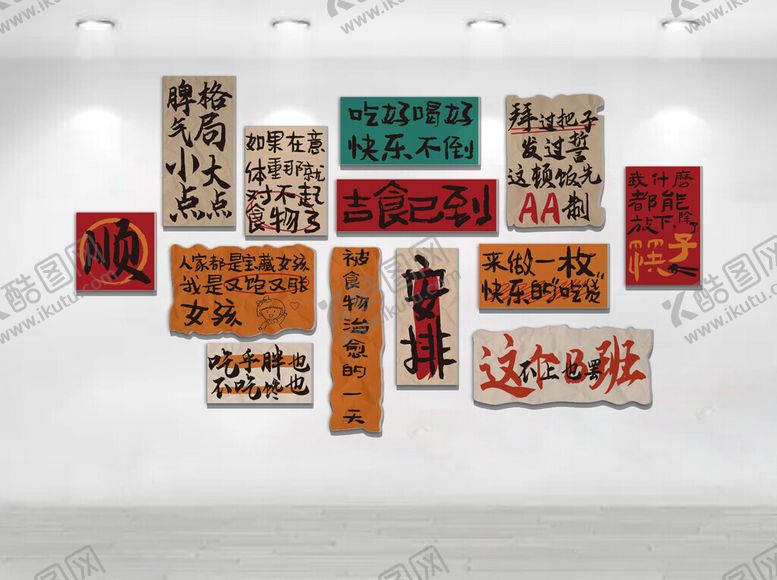 格局大点
脾气小点
如果在意
体重那就
对不起
食物了
吃好喝好
快乐不倒
吉食已到
拜过把子
发过誓
这顿饭先
AA制
我什麽
都能
放下除了
筷子
顺
人家都是宝藏女孩
我是又饱又胀
女孩
被食物治愈的一天
安排
来做一枚
快乐的"吃货"
吃乎胖也
不吃馋也
这个B班
不上也罢
酷图网
www.ikutu.com